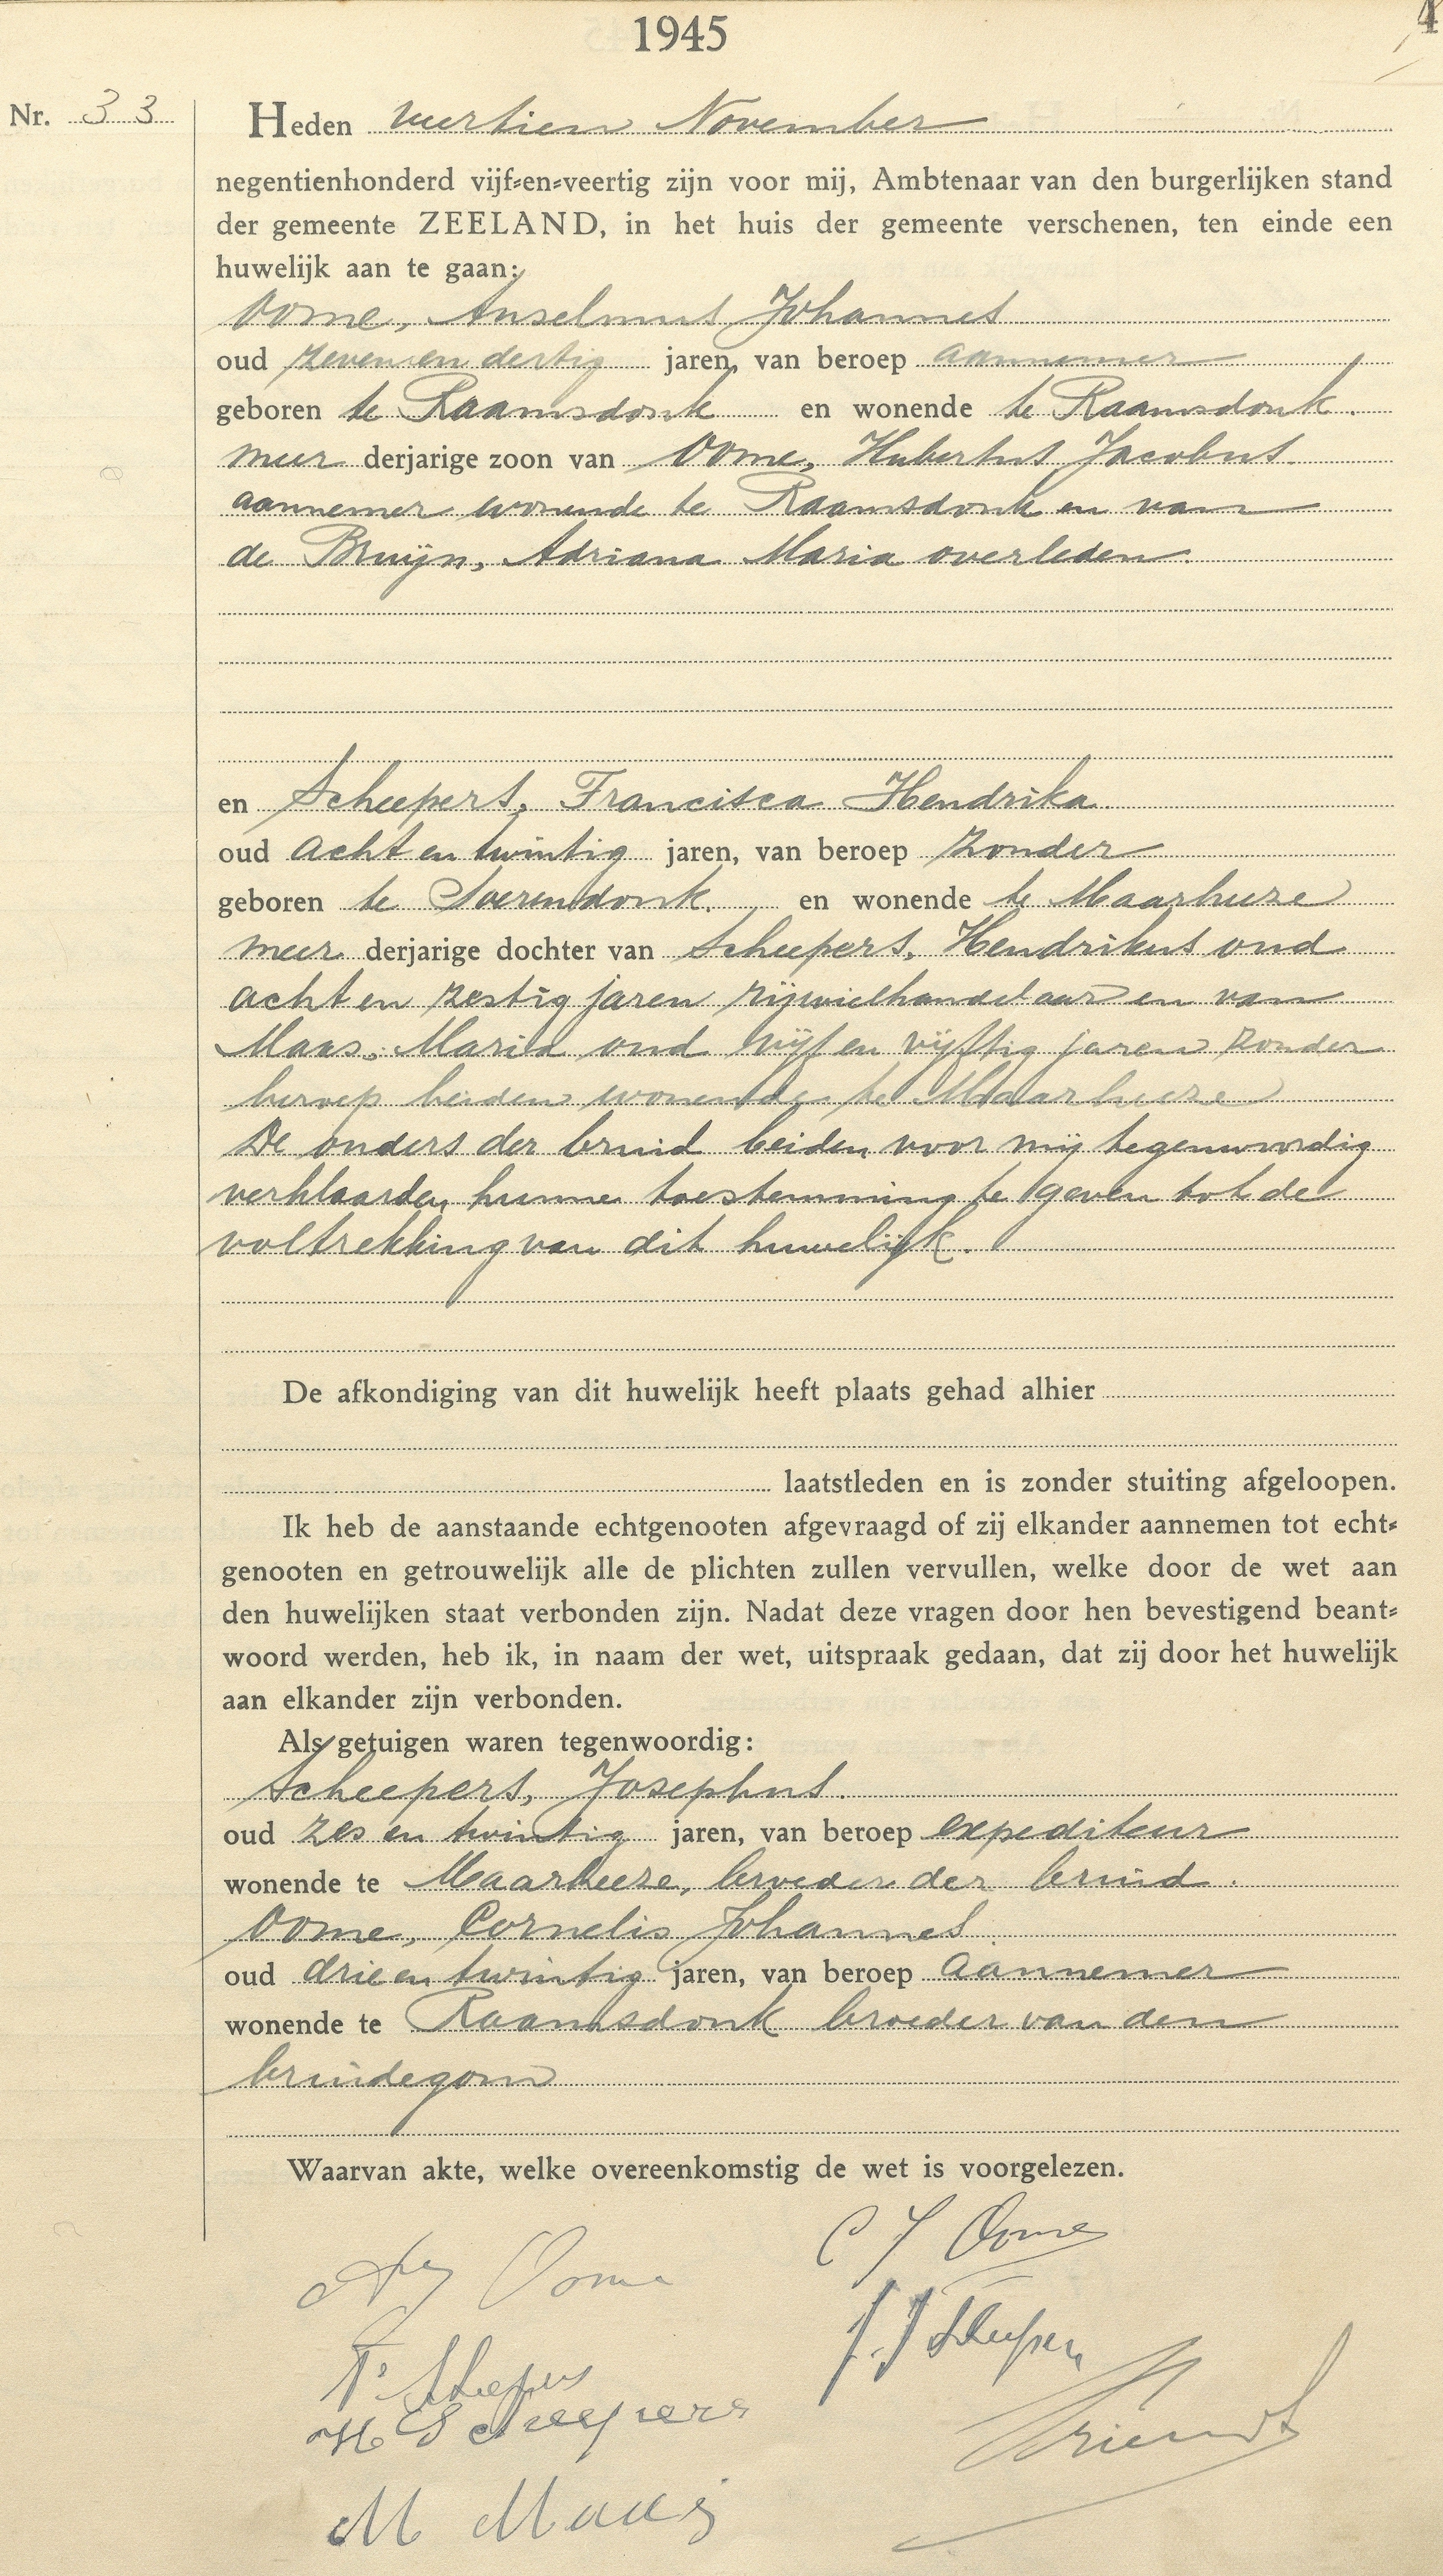 1945
4
Nr. 33
Heden veertien November
negentienhonderd vijf-en-veertig zijn voor mij, Ambtenaar van den burgerlijken stand
der gemeente ZEELAND, in het huis der gemeente verschenen, ten einde een
huwelijk aan te gaan:
Oome, Anselmus Johannes
oud zevenen dertig jaren, van beroep aannemer
geboren te Raamsdonk en wonende te Raamsdonk.
meer derjarige zoon van Oome, Hubertus Jacobus.
aannemer wonende te Raamsdonk en van
de Bruijn, Adriana Maria overleden.
en Scheepers, Francisca Hendrika
oud acht en twintig jaren, van beroep zonder
geboren te Soerendonk. en wonende te Maarheeze
meer derjarige dochter van Scheepers, Hendrikus oud
acht en zestig jaren rijwielhandelaar en van
Maas, Maria oud vijf en vijftig jaren zonder
beroep beiden wonende te Maarheeze
De ouders der bruid beiden voor mij tegenwoordig
verklaarden hunne toestemming te geven tot de
voltrekking van dit huwelijk.
De afkondiging van dit huwelijk heeft plaats gehad alhier
laatstleden en is zonder stuiting afgeloopen.
Ik heb de aanstaande echtgenooten afgevraagd of zij elkander aannemen tot echt-
genooten en getrouwelijk alle de plichten zullen vervullen, welke door de wet aan
den huwelijken staat verbonden zijn. Nadat deze vragen door hen bevestigend beant-
woord werden, heb ik, in naam der wet, uitspraak gedaan, dat zij door het huwelijk
aan elkander zijn verbonden.
Als getuigen waren tegenwoordig:
Scheepers, Josephus.
oud zes en twintig jaren, van beroep expediteur
wonende te Maarheeze, broeder der bruid.
Oome, Cornelis Johannes
oud drie en twintig jaren, van beroep aannemer
wonende te Raamsdonk broeder van den
bruidegom
Waarvan akte, welke overeenkomstig de wet is voorgelezen.
C J Oome
Oome
J. J Scheepers
Fr Scheepers
H Scheepers
M Maas